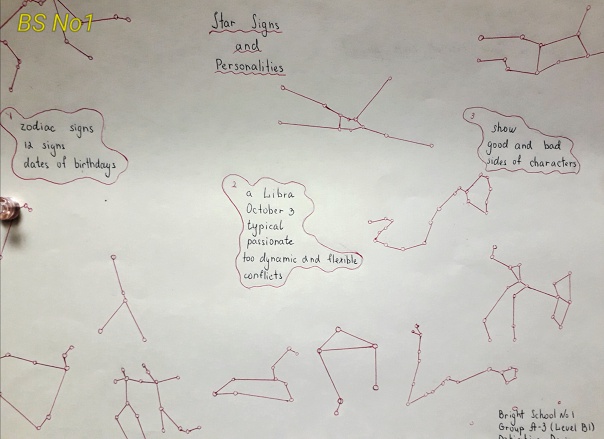 BS No1
Star Signs
and
Personalities
1
zodiac signs
12 signs
dates of birthdays
2
a Libra
October 3
typical
passionate
too dynamic and flexible
conflicts
3
show
good and bad
sides of characters
Bright School No 1
Group A-3 (Level B1)